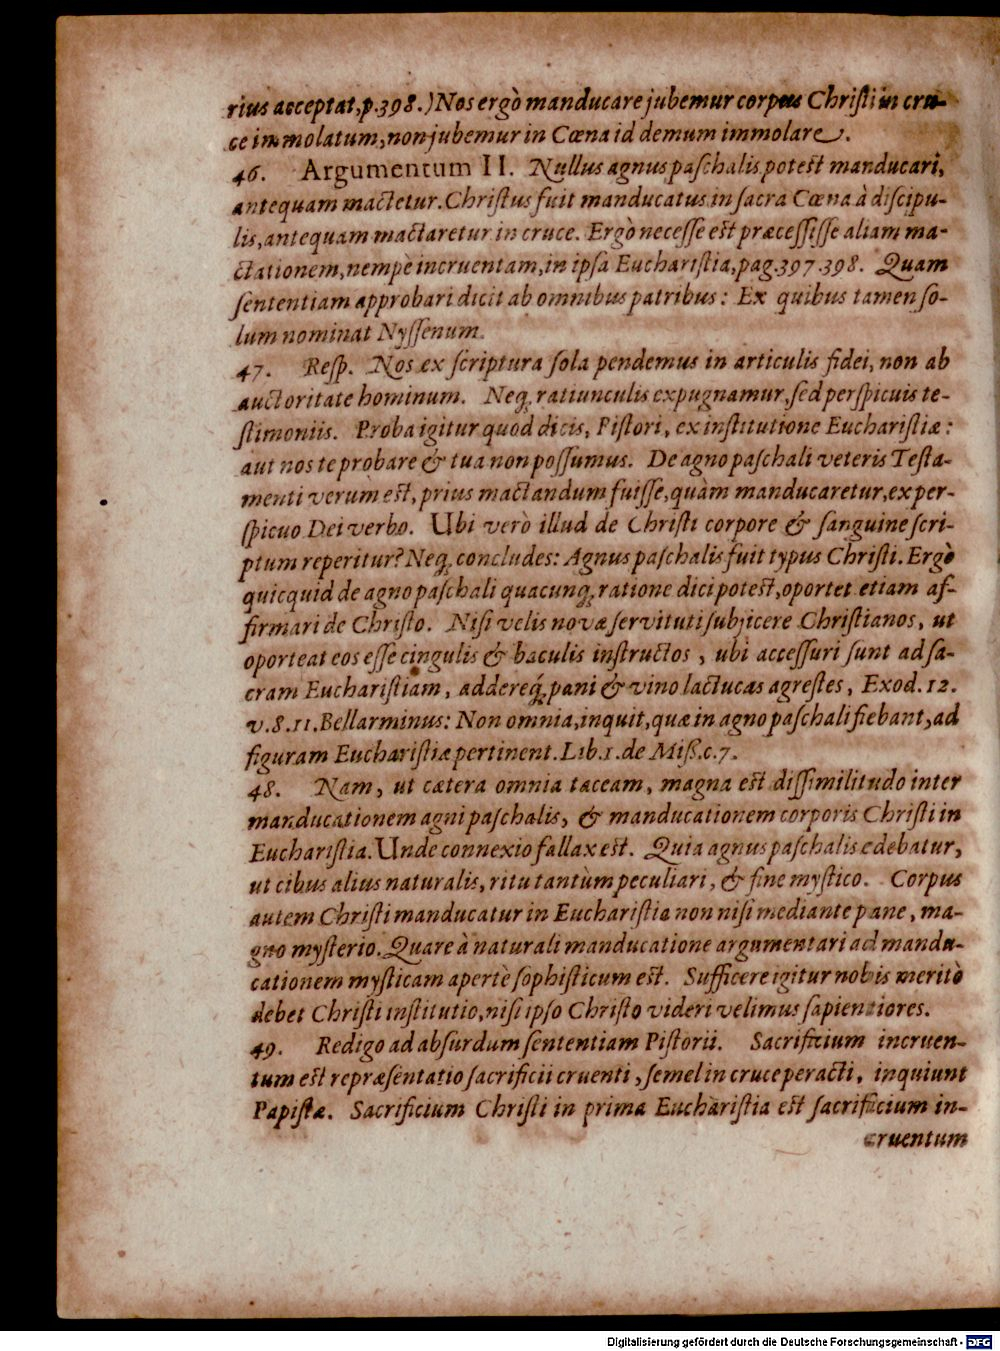 rius acceptat, p.398.) Nos ergò manducare jubemur corpus Christi in cru-
ce immolatum, non jubemur in Cœna id demum immolare.
46. Argumentum II. Nullus agnus paschalis potest manducari,
antequam mactetur. Christus fuit manducatus in sacra Cœna à discipu-
lis, antequam mactaretur in cruce. Ergò necesse est præcessisse aliam ma-
ctationem, nempè incruentam, in ipsa Eucharistia, pag.397.398. Quam
sententiam approbari dicit ab omnibus patribus: Ex quibus tamen so-
lum nominat Nyssenum.
47. Resp. Nos ex scriptura sola pendemus in articulis fidei, non ab
auctoritate hominum. Neq; ratiunculis expugnamur, sed perspicuis te-
stimoniis. Proba igitur quod dicis, Pistori, ex institutione Eucharistiæ:
aut nos te probare & tua non possumus. De agno paschali veteris Testa-
menti verum est, prius mactandum fuisse, quàm manducaretur, ex per-
spicuo Dei verbo. Ubi verò illud de Christi corpore & sanguine scri-
ptum reperitur? Neq; concludes: Agnus paschalis fuit typus Christi. Ergò
quicquid de agno paschali quacunq; ratione dici potest, oportet etiam af-
firmari de Christo. Nisi velis novæ servituti subjicere Christianos, ut
oporteat eos esse cingulis & baculis instructos, ubi accessuri sunt ad sa-
cram Eucharistiam, addereq́; pani & vino lactucas agrestes, Exod.12.
v.8.11. Bellarminus: Non omnia, inquit, quæ in agno paschali fiebant, ad
figuram Eucharistiæ pertinent. Lib.1. de Miß.c.7.
48. Nam, ut cætera omnia taceam, magna est dissimilitudo inter
manducationem agni paschalis, & manducationem corporis Christi in
Eucharistia. Unde connexio fallax est. Quia agnus paschalis edebatur,
ut cibus alius naturalis, ritu tantùm peculiari, & fine mystico. Corpus
autem Christi manducatur in Eucharistia non nisi mediante pane, ma-
gno mysterio. Quare à naturali manducatione argumentari ad mandu-
cationem mysticam apertè sophisticum est. Sufficere igitur nobis meritò
debet Christi institutio, nisi ipso Christo videri velimus sapientiores.
49. Redigo ad absurdum sententiam Pistorii. Sacrificium incruen-
tum est repræsentatio sacrificii cruenti, semel in cruce peracti, inquiunt
Papistæ. Sacrificium Christi in prima Eucharistia est sacrificium in-
cruentum
Digitalisierung gefördert durch die Deutsche Forschungsgemeinschaft - DFG